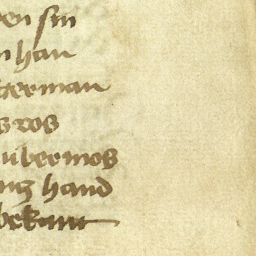 en sin
n han
terman
s ros
ubermos
ng hand
bekant